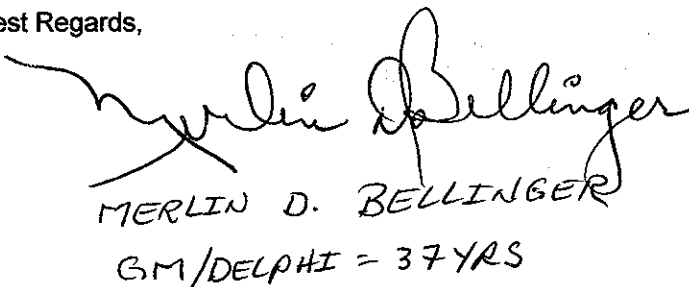 est Regards,
Merlin D Bellinger
MERLIN D. BELLINGER
GM/DELPHI = 37 YRS